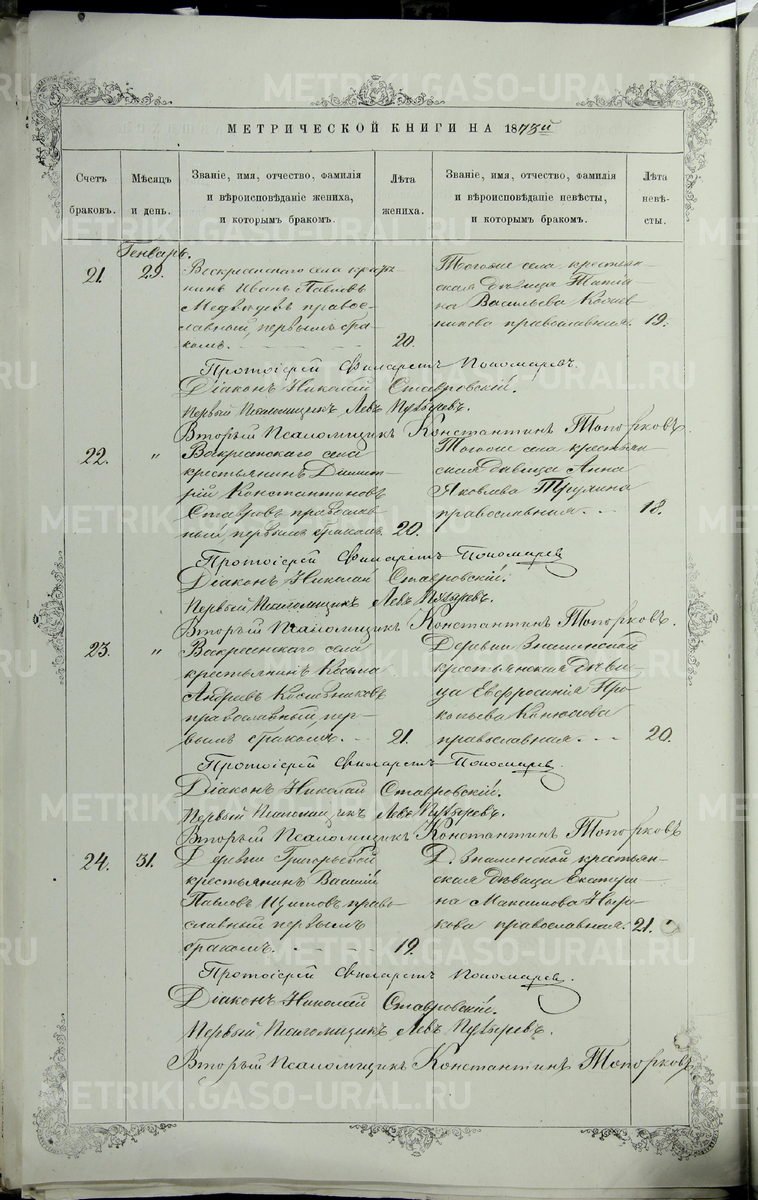 МЕТРИЧЕСКОЙ КНИГИ НА 1873й
Счетъ браковъ.
Мѣсяцъ и день.
Званіе, имя, отчество, фамилія и вѣроисповѣданіе жениха, и которымъ бракомъ.
Лѣта жениха.
Званіе, имя, отчество, фамилія и вѣроисповѣданіе невѣсты, и которымъ бракомъ.
Лѣта невѣсты.
Генварь.
21.
29.
Воскресенскаго села крестья-
нинъ Иванъ Павловъ
православный, первымъ бра-
комъ.
20.
Тогоже села крестьян-
ская дѣвица Татья-
на Васильева
православная.
19.
Протоіерей Филаретъ Пономаревъ.
Діаконъ Николай Ставровскій.
Первый Псаломщикъ Левъ Пузыревъ.
Вторый Псаломщикъ Константинъ Топорковъ.
22.
"
Воскресенскаго села
крестьянинъ Димит-
рій Константиновъ
Ставровъ православ-
ный, первымъ бракомъ.
20.
Тогоже села крестьян-
ская дѣвица Анна
Яковлева
православная.
18.
Протоіерей Филаретъ Пономаревъ
Діаконъ Николай Ставровскій.
Первый Псаломщикъ Левъ Пузыревъ.
Вторый Псаломщикъ Константинъ Топорковъ.
23.
"
Воскресенскаго села
крестьянинъ Косьма
Андреевъ
православный, пер-
вымъ бракомъ.
21.
Деревни Знаменской
крестьянская дѣви-
ца Евфросинія Про-
копьева
православная.
20.
Протоіерей Филаретъ Пономаревъ.
Діаконъ Николай Ставровскій.
Первый Псаломщикъ Левъ Пузыревъ.
Вторый Псаломщикъ Константинъ Топорковъ
24.
31.
Деревни Григорьевой
крестьянинъ Василій
Павловъ Щитовъ право-
славный первымъ
бракомъ.
19.
Д. Знаменской крестьян-
ская дѣвица Екатери-
на Максимова
православная.
21.
Протоіерей Филаретъ Пономаревъ.
Діаконъ Николай Ставровскій.
Первый Псаломщикъ Левъ Пузыревъ.
Вторый Псаломщикъ Константинъ Топорковъ
METRIKI.GASO-URAL.RU